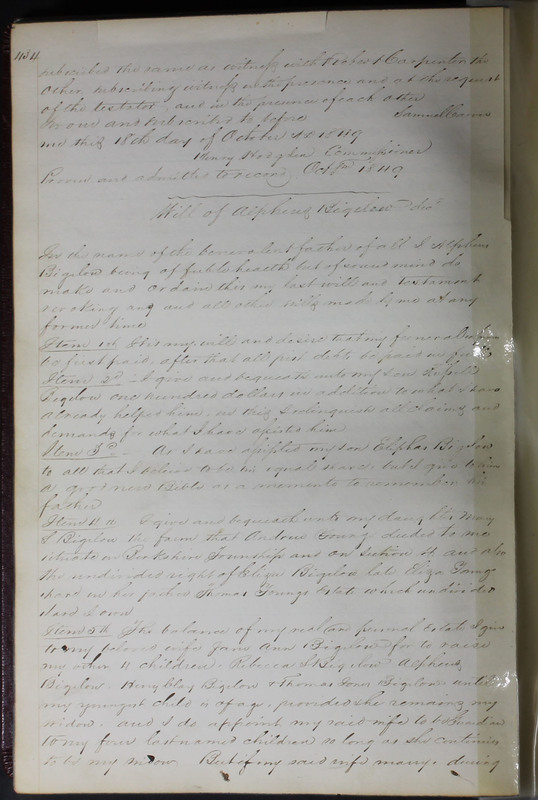 434
subscribed the same as witness with Robert Carpenter the
other subscribing witness in the presence and at the request
of the testator, and in the presence of each other
Sworn and subscribed to before Samuel
me this 18th day of October AD 1849
Henry Hodgden Commissioner
Proven and admitted to record Oct 1849
Will of Alpheus Bigelow Decd
In the name of the benevolent father of all I Alpheus
Bigelow being of feeble health but of sound mind do
make and ordain this my last will and testament
revoking any and all other wills made by me at any
former time
Item 1st It is my will and desire that my funeral
be first paid, after that all just debts be paid in full
Item 2d I give and bequeath unto my son
Bigelow one hundred dollars in addition to what I have
already helped him, in this I relinquish all claims and
demands for what I have assisted him
Item 3d As I have assisted my son Eliphas Bigelow
to all that I believe to be his equal share, but I give to him
a good new Bible as a memento to remember his
father
Item 4th I give and bequeath unto my daughter Mary
S Bigelow the farm that Andrew Young deeded to me
situate in Berkshire Township and on section 4 and also
the undivided right of Eliza Bigelow late Eliza Young
shard in her father Thomas Youngs Estate which undivided
Land I own
Item 5th The balance of my real and personal Estate I give
to my beloved wife Jane Ann Bigelow for to raise
my other 4 children Rebecca S Bigelow Alpheus
Bigelow Henry Clay Bigelow & Thomas Bigelow until
my youngest child is of age, provided she remains my
widow, and I do appoint my said wife to be guardian
to my four last named children so long as she continues
to be my widow But if my said wife marry, during